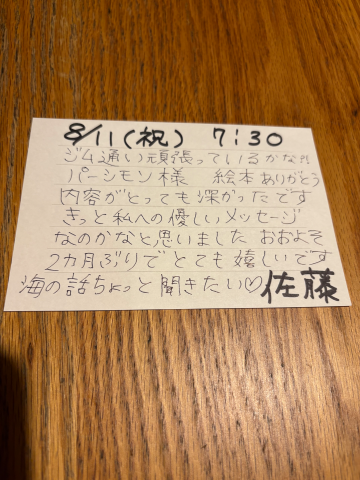 8/11(祝) 7:30
ジム通い頑張っているかな?!
パーシモン様 絵本ありがとう
内容がとっても深かったです
きっと私への優しいメッセージ
なのかなと思いました おおよそ
2カ月ぶりでとても嬉しいです
海の話ちょっと聞きたい♡ 佐藤